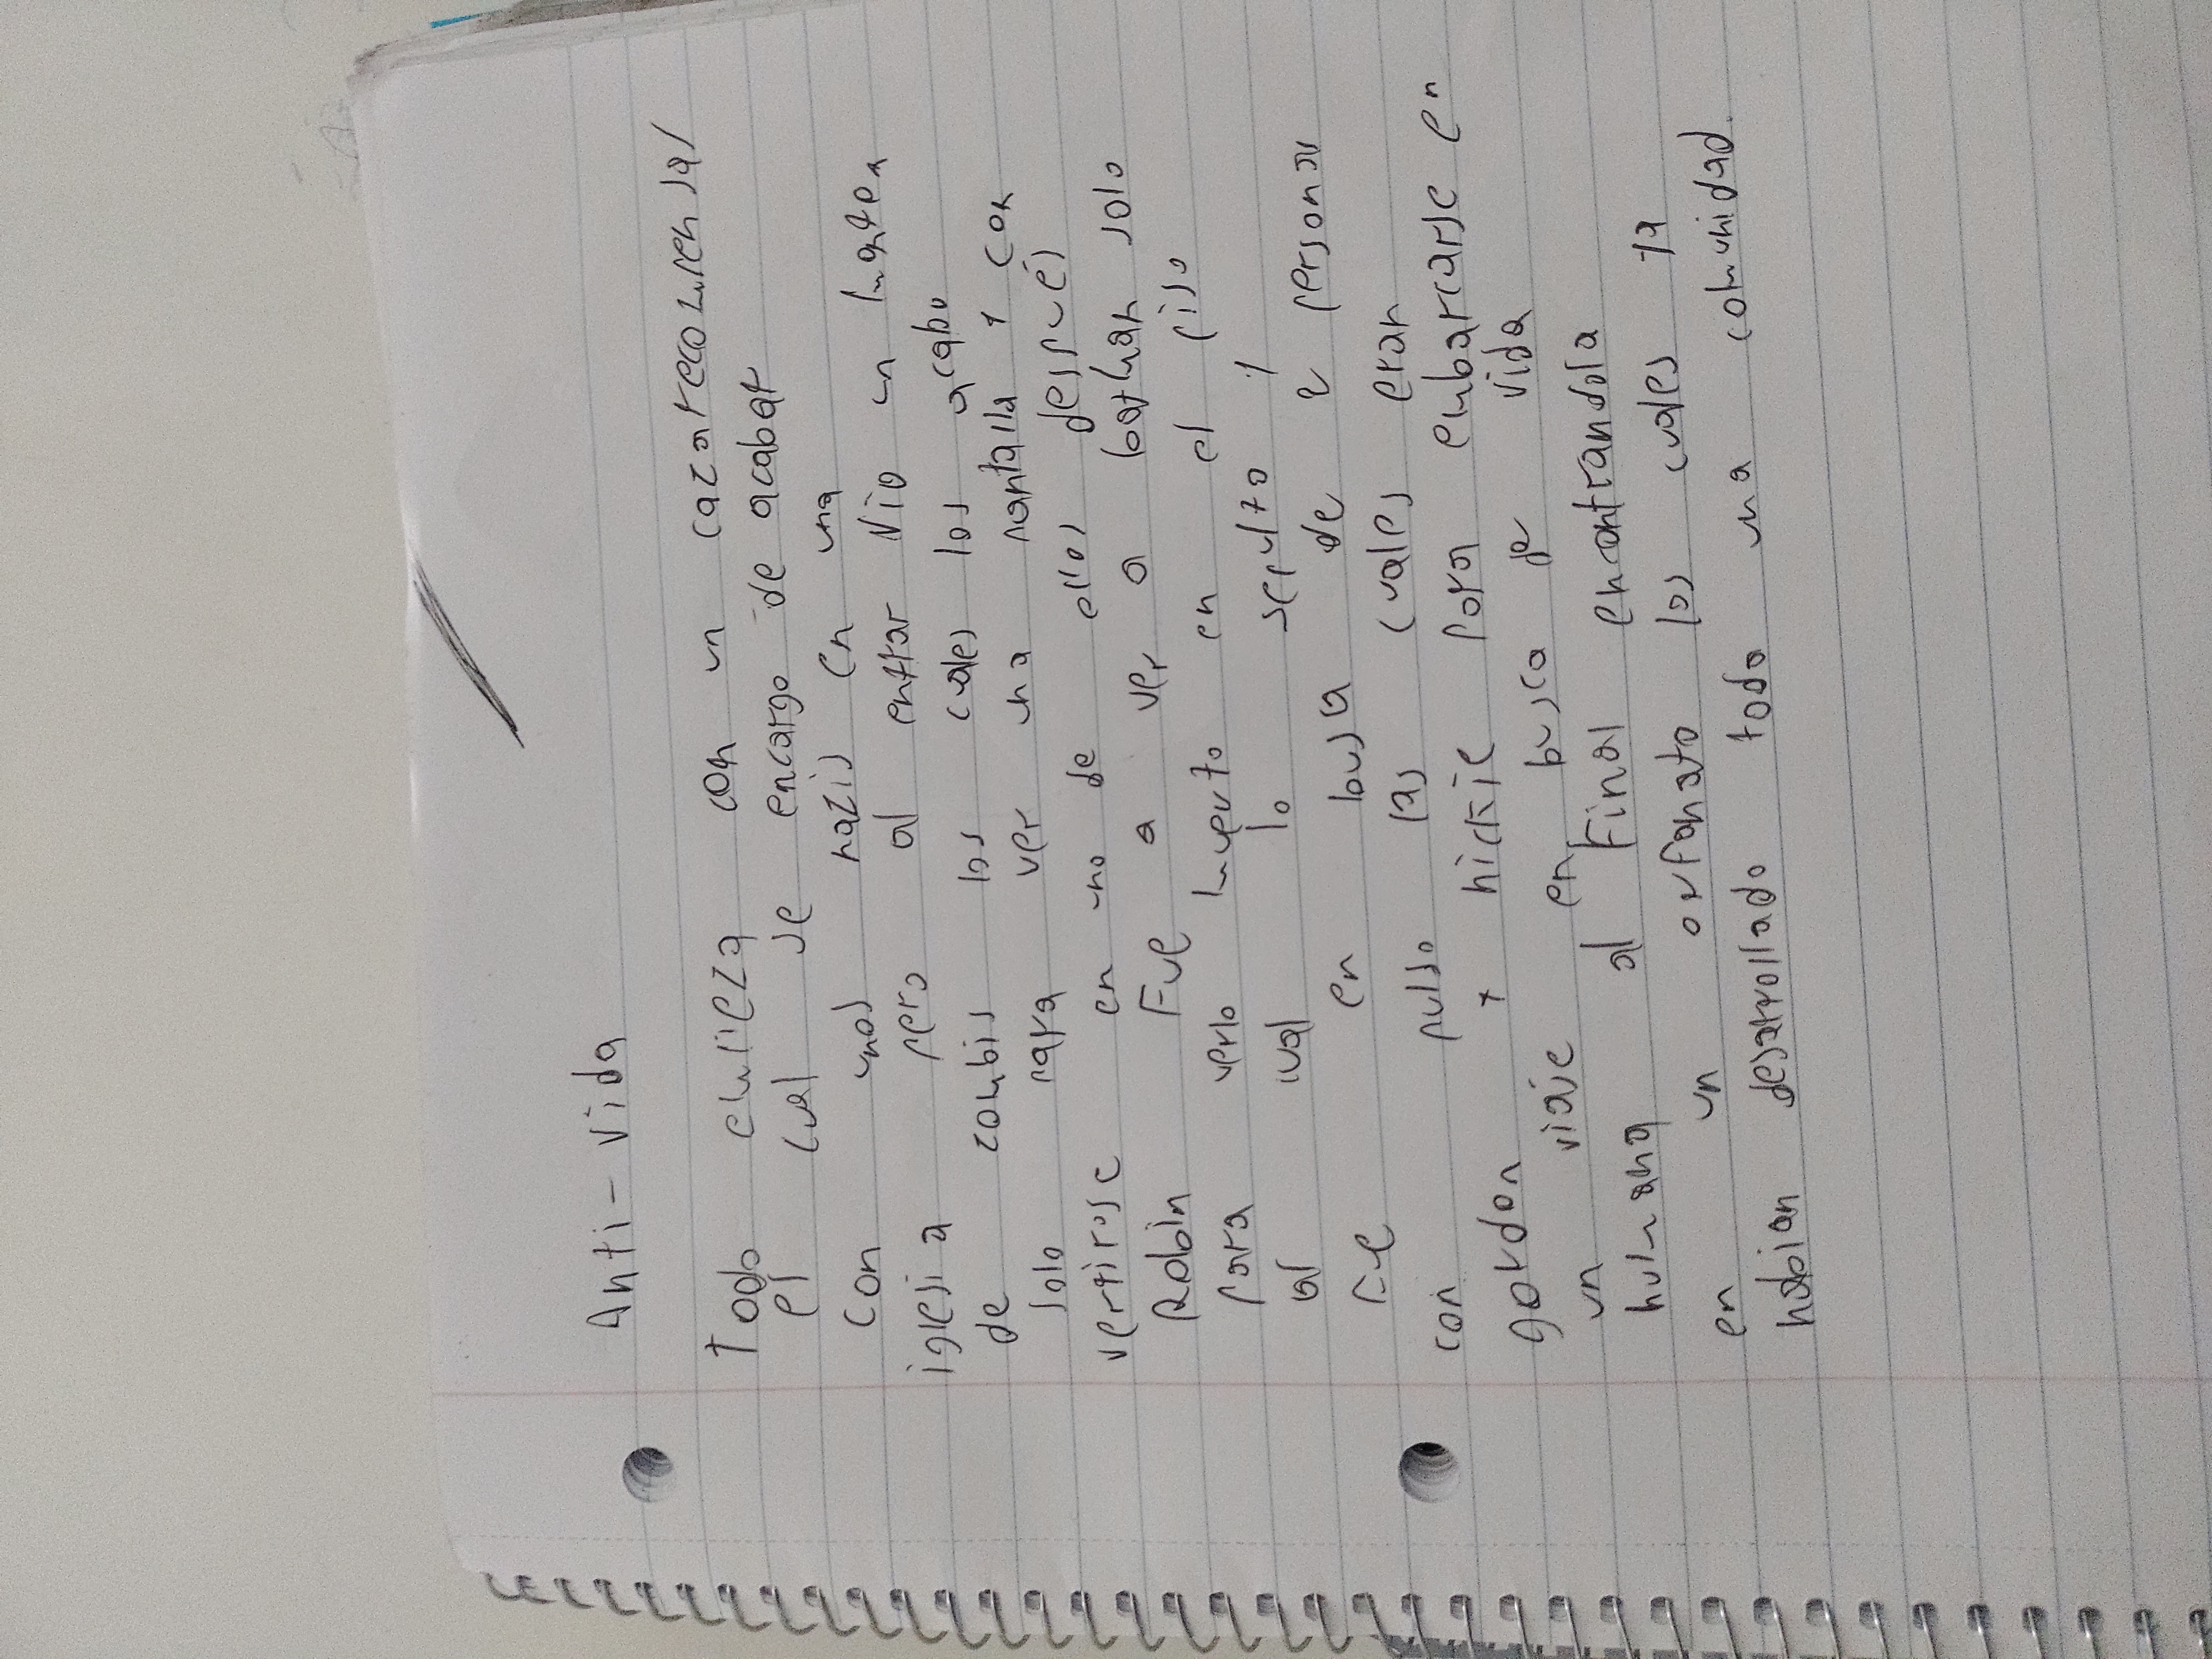 Anti-Vida
Todo empieza con un cazarecompensas
el cual se encargo de acabar
con unos nazis en una
iglesia pero al entrar vio un
de zombis los cuales los acabo
solo para ver una pantalla y con
vertirse en uno de ellos después
Robin Fue a ver a batman solo
para verlo muerto en el piso
al cual lo sepulto y
Fue en busca de personas
con pulso las cuales eran
gordon y para embarcarse en
un viaje en busca de vida
humana al Final encontrandola
en un orfanato los cuales ya
habian desarrollado todo una comunidad.